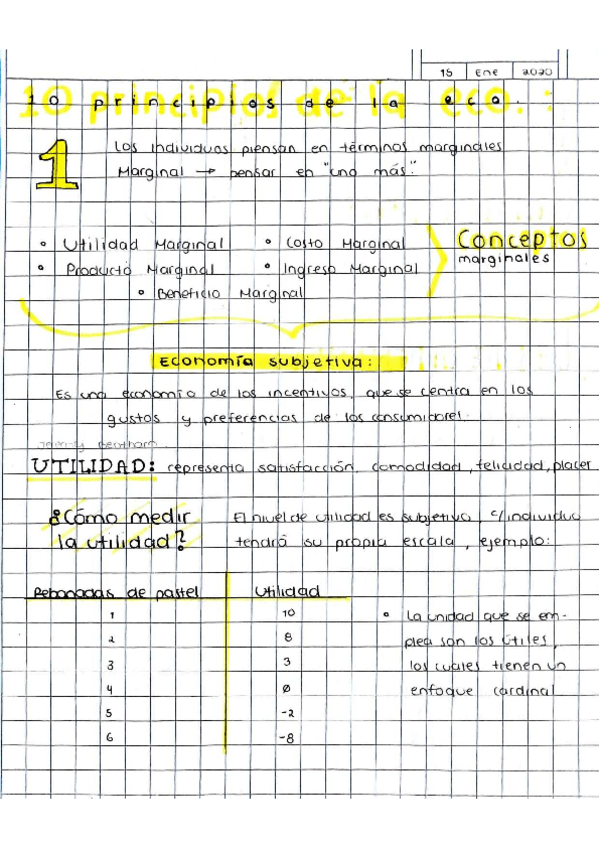 15 Ene 2020
10 principios de la eco. :
1
Los individuos piensan en términos marginales
Marginal → pensar en "uno más."
• Utilidad Marginal • Costo Marginal
• Producto Marginal • Ingreso Marginal
• Beneficio Marginal
Conceptos
marginales
Economía subjetiva:
Es una economía de los incentivos, que se centra en los
gustos y preferencias de los consumidores.
Jeremy Bentham
UTILIDAD: representa satisfacción, comodidad, felicidad, placer
¿Cómo medir
la utilidad?
El nivel de utilidad es subjetivo, c/individuo
tendrá su propia escala, ejemplo:
Rebanadas de pastel Utilidad
1 10
2 8
3 3
4 0
5 -2
6 -8
• La unidad que se em-
plea son los útiles,
los cuales tienen un
enfoque cardinal